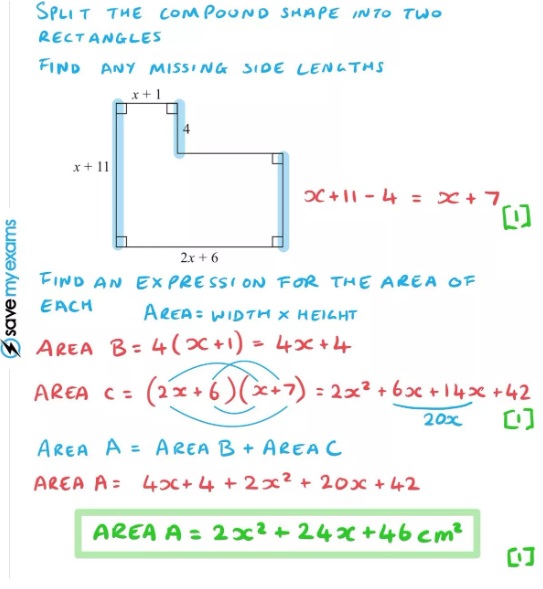 SPLIT THE COMPOUND SHAPE INTO TWO
RECTANGLES
FIND ANY MISSING SIDE LENGTHS
x + 1
4
x + 11
x+11-4 = x+7
[1]
2x + 6
FIND AN EXPRESSION FOR THE AREA OF
EACH AREA= WIDTH × HEIGHT
AREA B = 4(x+1) = 4x+4
AREA C = (2x+6)(x+7) = 2x² + 6x+14x +42
20x
[1]
AREA A = AREA B + AREA C
AREA A = 4x+4 + 2x² + 20x +42
AREA A = 2x² + 24x +46 cm²
[1]
save my exams